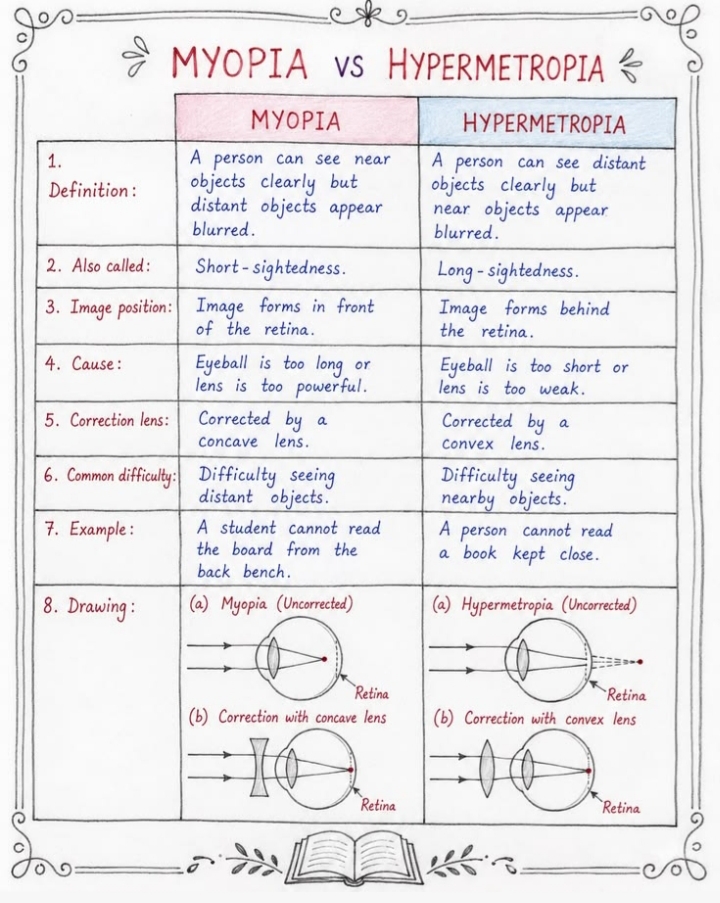 MYOPIA VS HYPERMETROPIA
MYOPIA
HYPERMETROPIA
1.
Definition:
A person can see near
objects clearly but
distant objects appear
blurred.
A person can see distant
objects clearly but
near objects appear
blurred.
2. Also called:
Short-sightedness.
Long-sightedness.
3. Image position:
Image forms in front
of the retina.
Image forms behind
the retina.
4. Cause:
Eyeball is too long or
lens is too powerful.
Eyeball is too short or
lens is too weak.
5. Correction lens:
Corrected by a
concave lens.
Corrected by a
convex lens.
6. Common difficulty:
Difficulty seeing
distant objects.
Difficulty seeing
nearby objects.
7. Example:
A student cannot read
the board from the
back bench.
A person cannot read
a book kept close.
8. Drawing:
(a) Myopia (Uncorrected)
Retina
(b) Correction with concave lens
Retina
(a) Hypermetropia (Uncorrected)
Retina
(b) Correction with convex lens
Retina